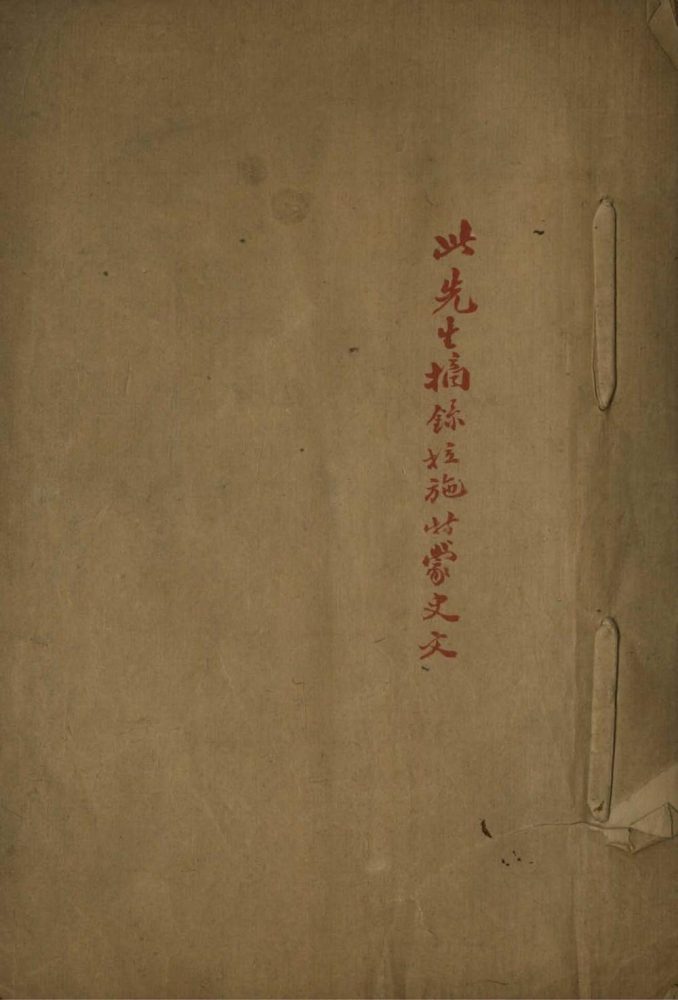 此先生摘錄拉施特蒙史文